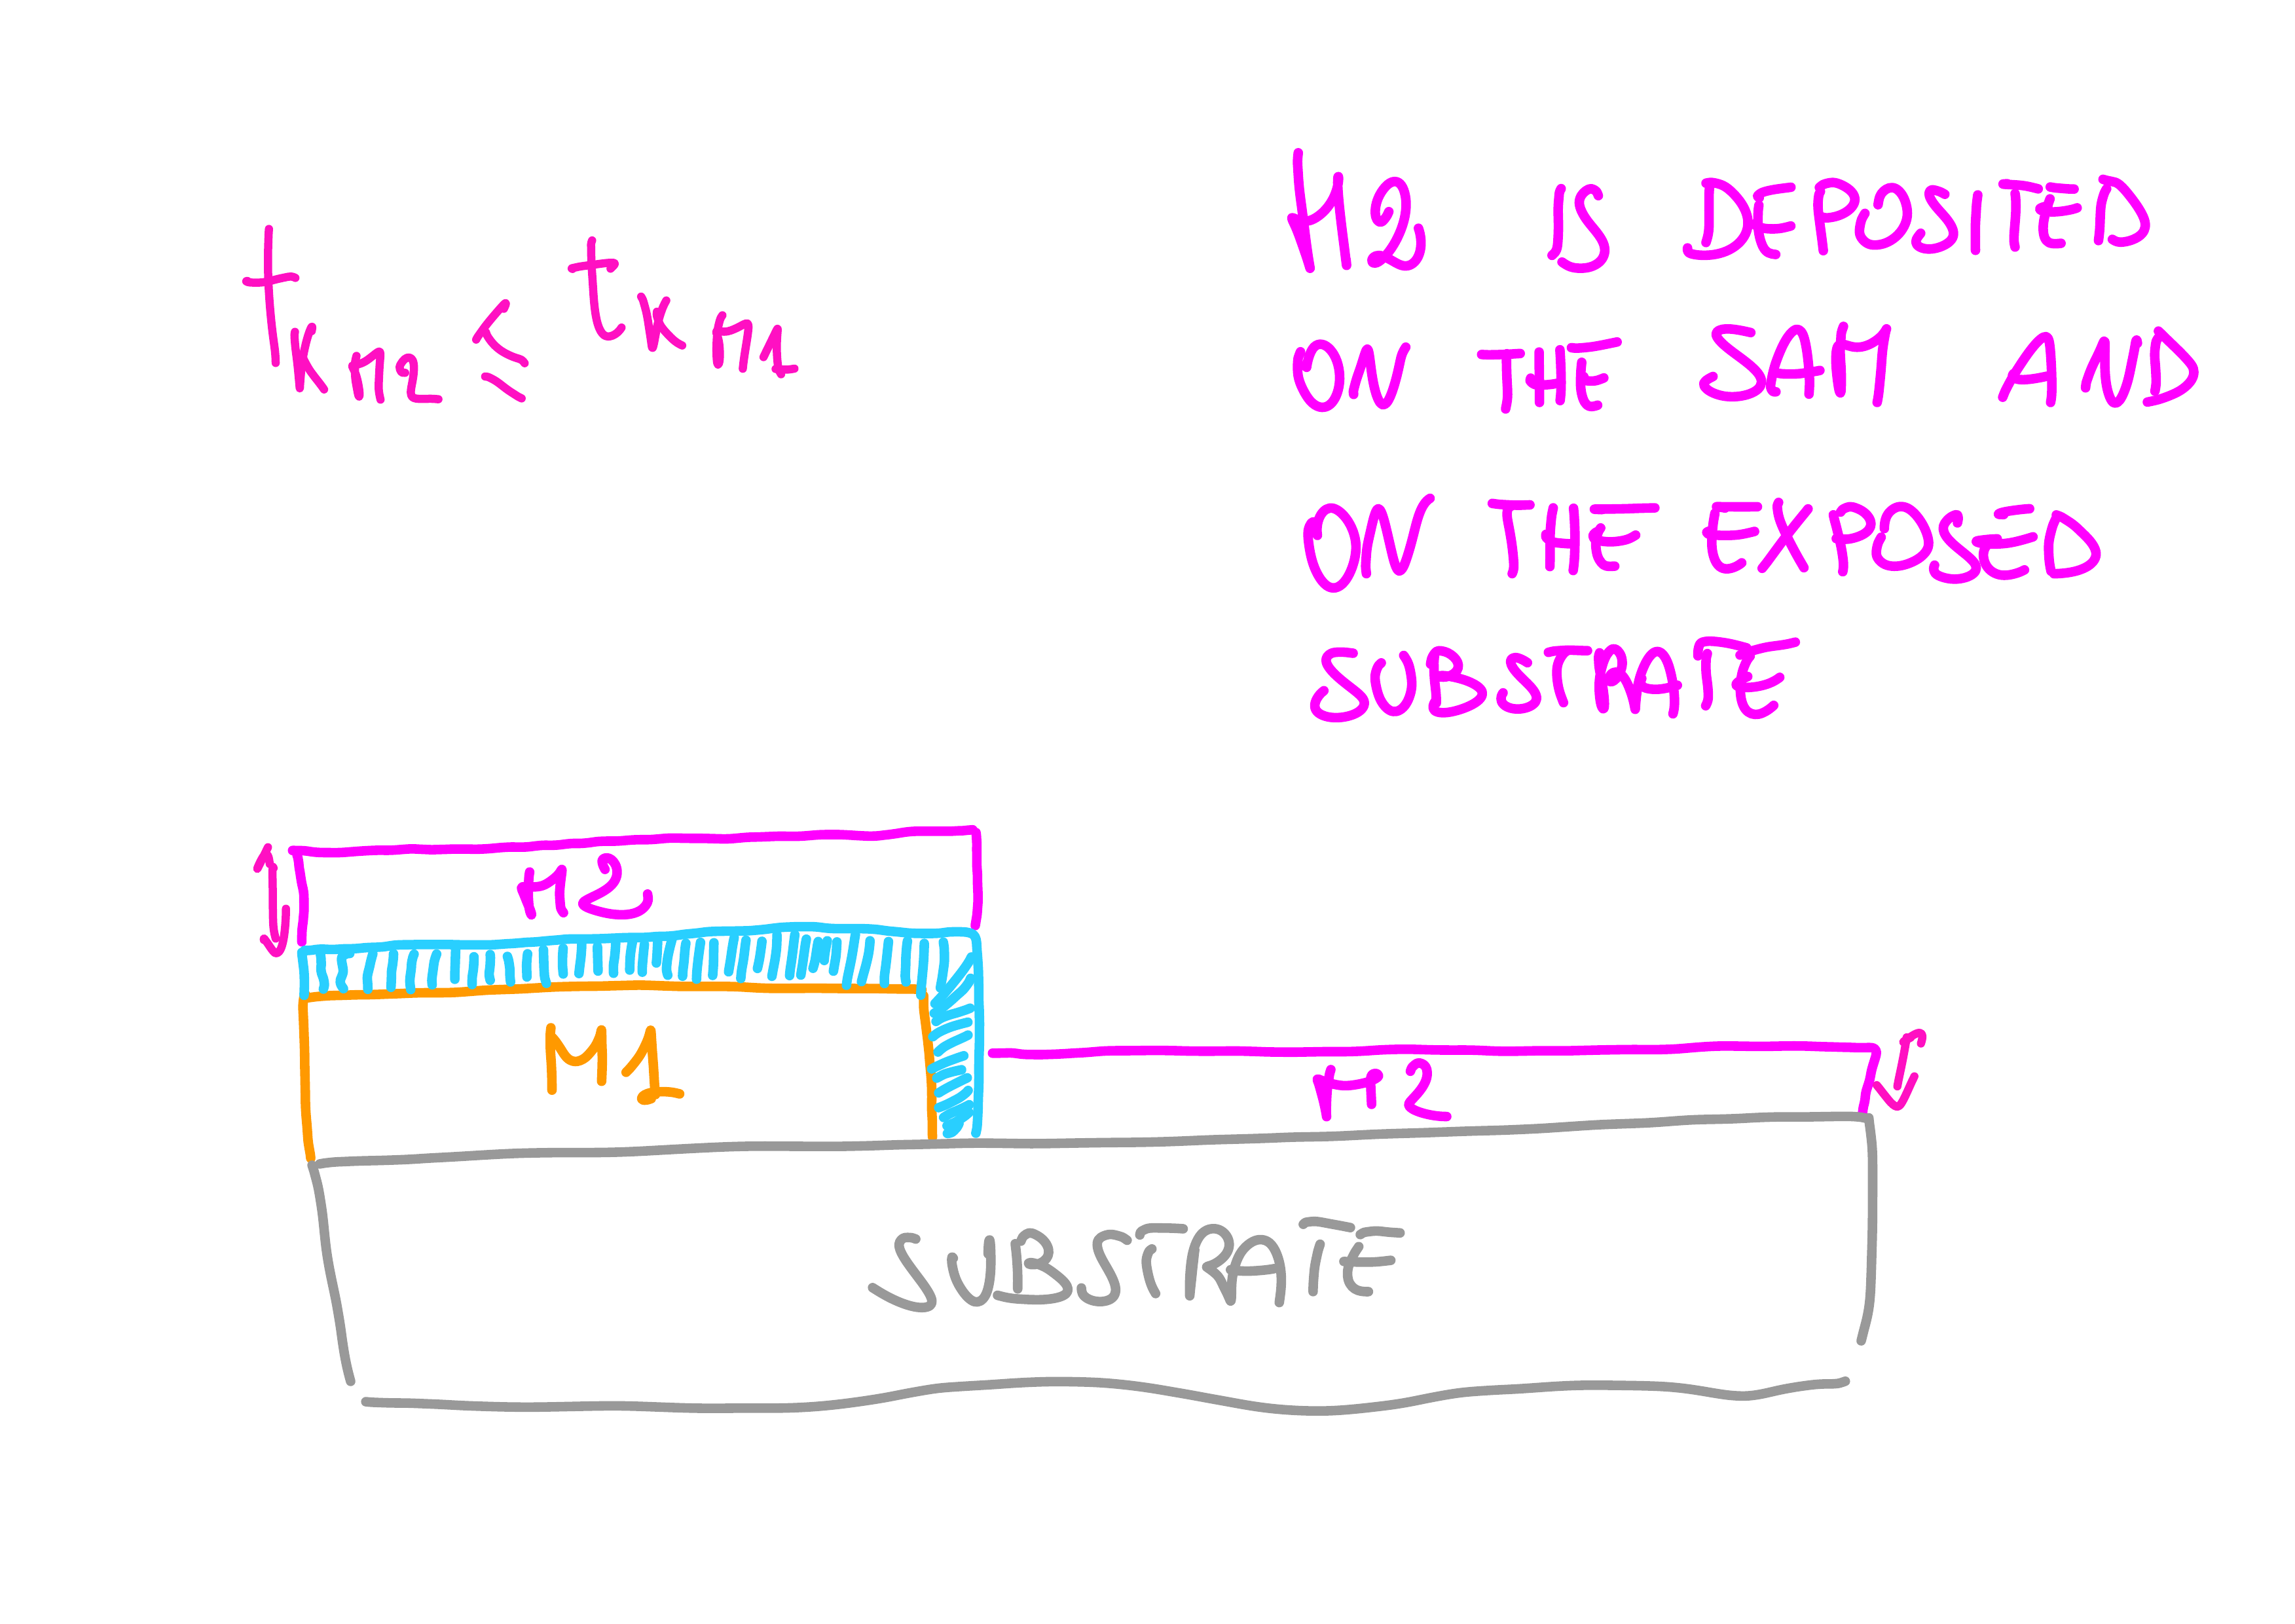 tkM2 ≤ tkM1
M2 IS DEPOSITED
ON THE SAM AND
ON THE EXPOSED
SUBSTRATE
M2
M1
M2
SUBSTRATE